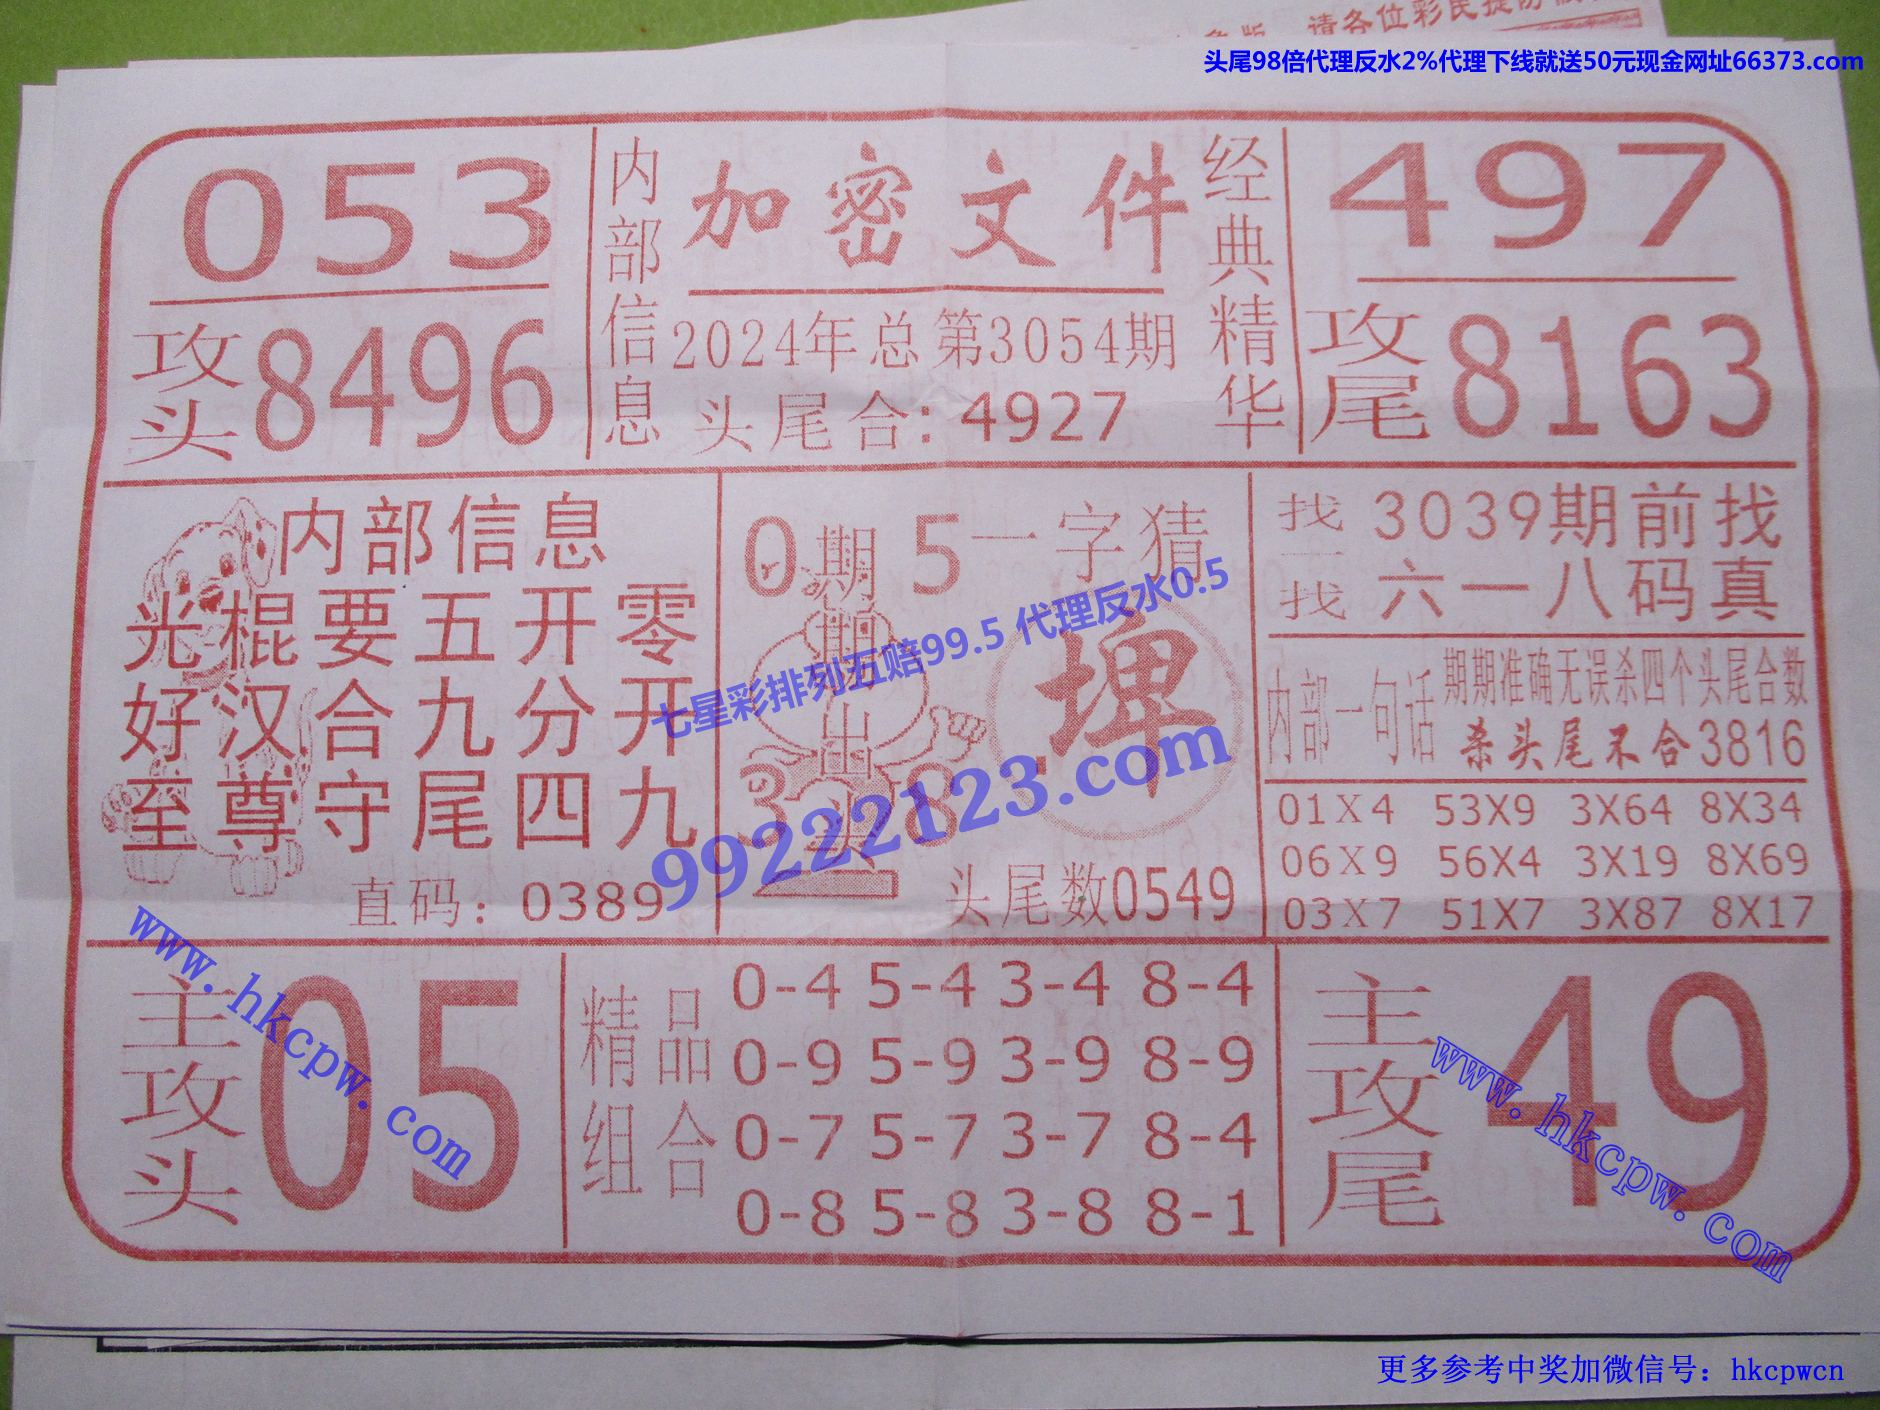 请各位彩民提防
头尾98倍代理反水2%代理下线就送50元现金网址66373.com
053
攻头 8496
内部信息
加密文件
2024年总第3054期
头尾合: 4927
经典精华
497
攻尾 8163
内部信息
光棍要五开零
好汉合九分开
至尊守尾四九
直码: 0389
0 5
期期出头
3 8
一字猜
埤
头尾数0549
找一找
3039期前找
六一八码真
内部一句话
期期准确无误杀四个头尾合数
杀头尾不合3816
01X4 53X9 3X64 8X34
06X9 56X4 3X19 8X69
03X7 51X7 3X87 8X17
七星彩排列五赔99.5 代理反水0.5
99222123.com
主攻头 05
精品组合
0-4 5-4 3-4 8-4
0-9 5-9 3-9 8-9
0-7 5-7 3-7 8-4
0-8 5-8 3-8 8-1
主攻尾 49
www.hkcpw.com
www.hkcpw.com
更多参考中奖加微信号: hkcpwcn